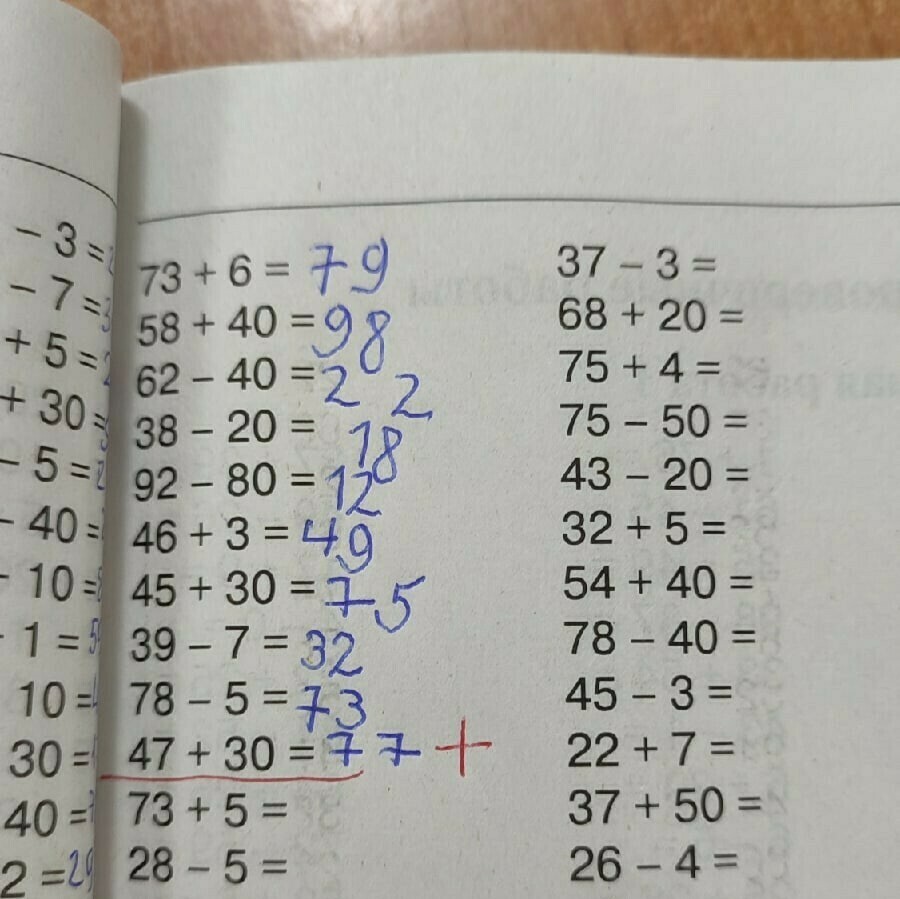 – 3 =
– 7 =
+ 5 =
+ 30 =
– 5 =
– 40 =
10 =
1 =
10 =
30 =
40 =
2 = 29
73 + 6 = 79
58 + 40 = 98
62 – 40 = 22
38 – 20 = 18
92 – 80 = 12
46 + 3 = 49
45 + 30 = 75
39 – 7 = 32
78 – 5 = 73
47 + 30 = 77 +
73 + 5 =
28 – 5 =
37 – 3 =
68 + 20 =
75 + 4 =
75 – 50 =
43 – 20 =
32 + 5 =
54 + 40 =
78 – 40 =
45 – 3 =
22 + 7 =
37 + 50 =
26 – 4 =